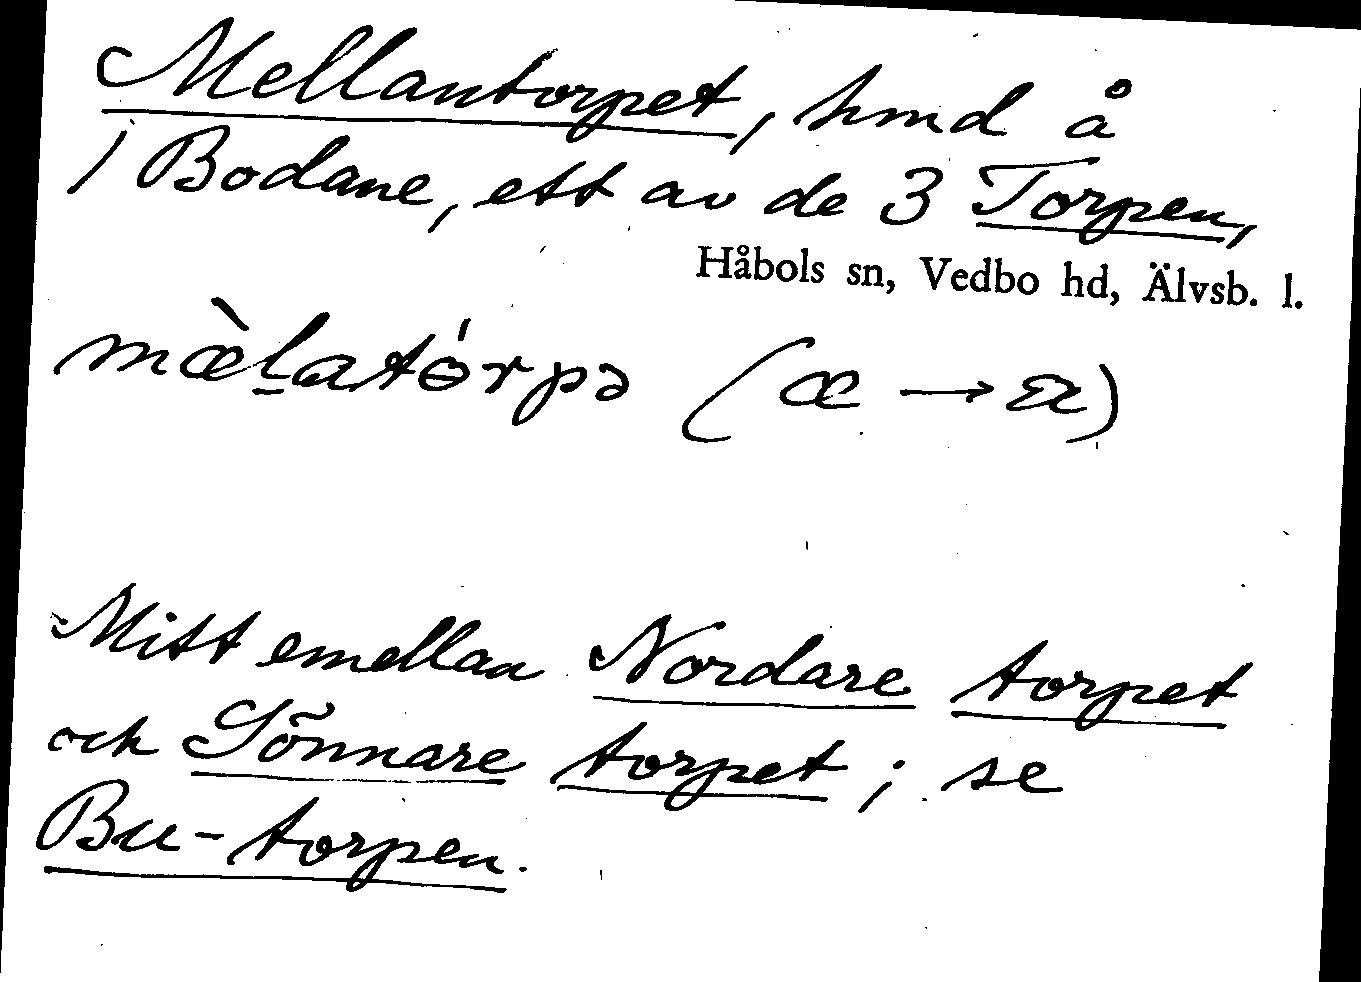 Mellantorpet, hmd å
1 Bodane, ett av de 3 Torpen,
Håbols sn, Vedbo hd, Älvsb. l.
mæ̀l̠atɵ́rpə (æ → a)
Mitt emellan Nordare torpet
och Sönnare torpet; se
Bu-torpen.